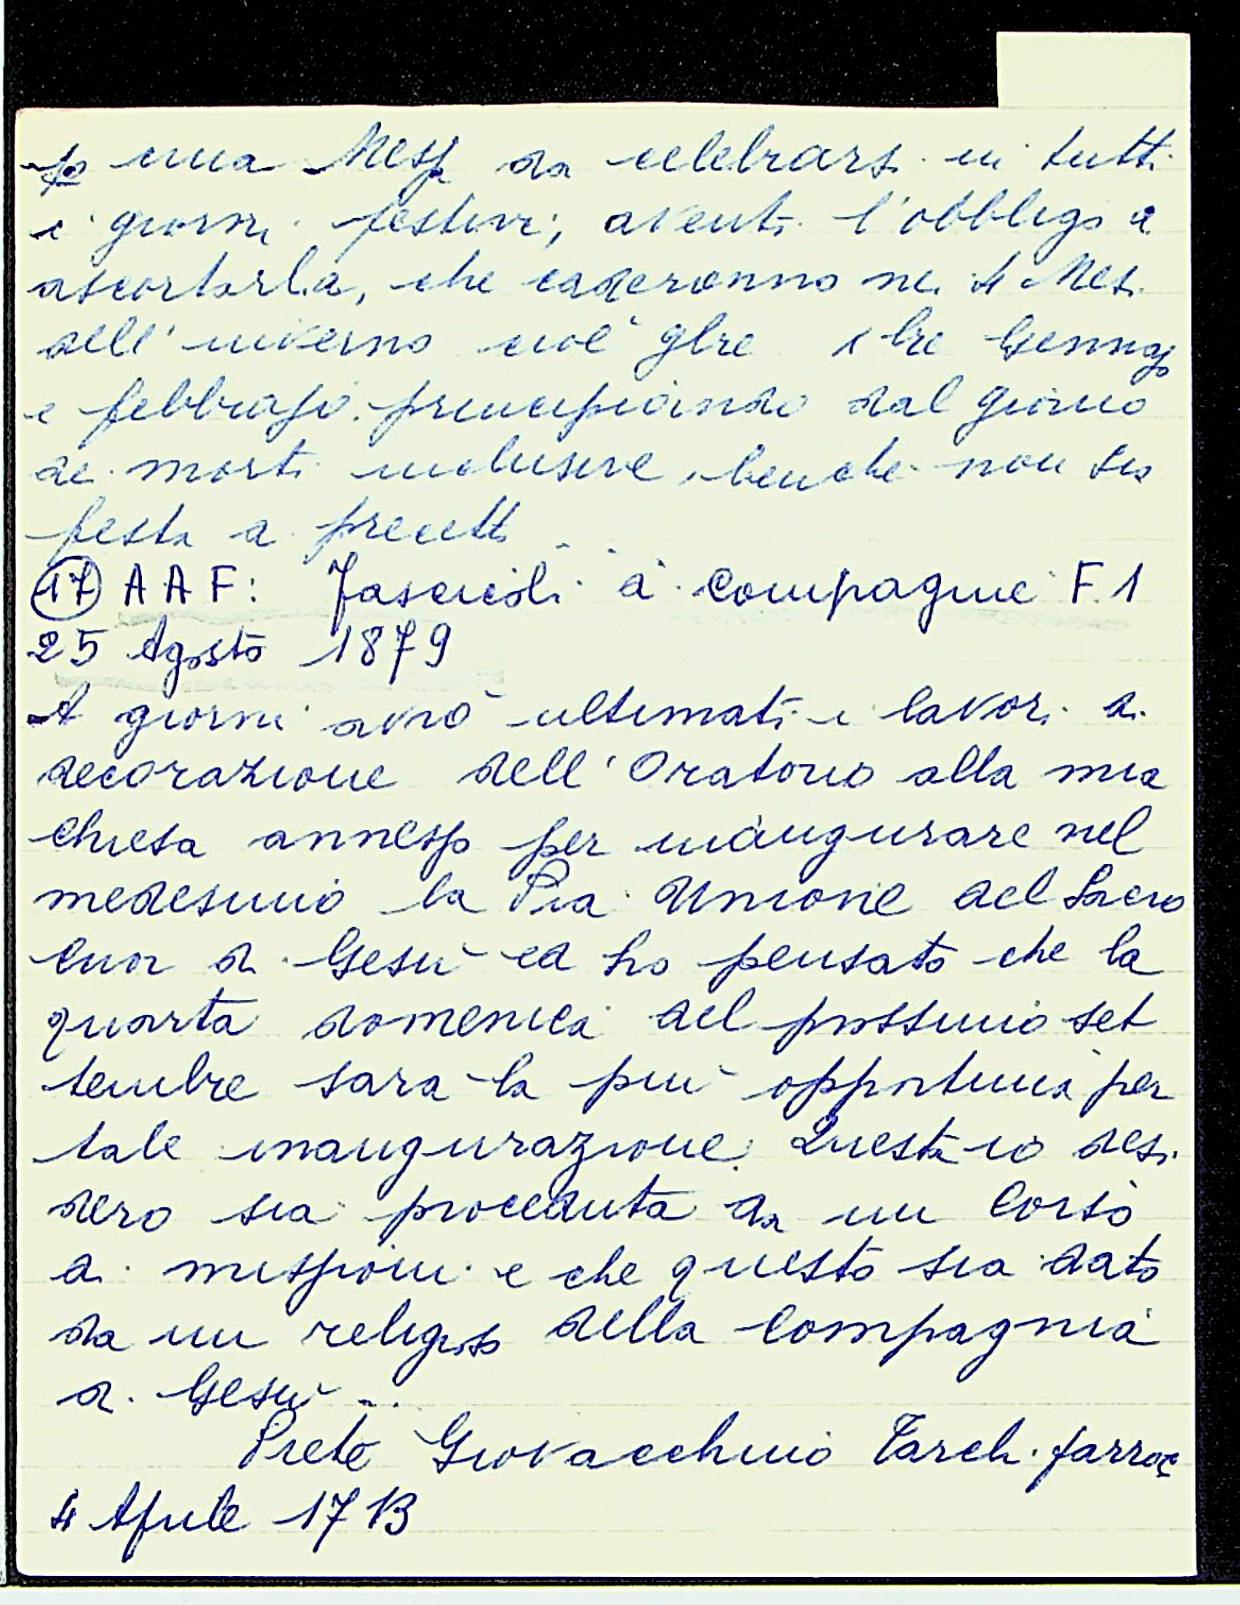 una Messa da celebrarsi in tutti
i giorni festivi, aventi l'obbligo di
ascoltarla, che caderanno nei 4 Mesi
dell'inverno cioè 9bre Xbre Gennajo
e febbrajo principiando dal giorno
dei morti inclusive, benche non sia
festa di precetto
(17) A A F: Fascicoli di compagnie F. 1
25 Agosto 1879
A giorni avrò ultimati i lavori di
decorazione dell'Oratorio alla mia
chiesa annesso per inaugurare nel
medesimo la Pia Unione del Sacro
Cuor di Gesù ed ho pensato che la
quarta domenica del prossimo set
tembre sarà la più opportuna per
tale inaugurazione. Questa io desi
dero sia proceduta da un corso
di missioni e che questo sia dato
da un religioso della Compagnia
di Gesù ...
Prete Giovacchino Tarchi parroc
4 Aprile 1713